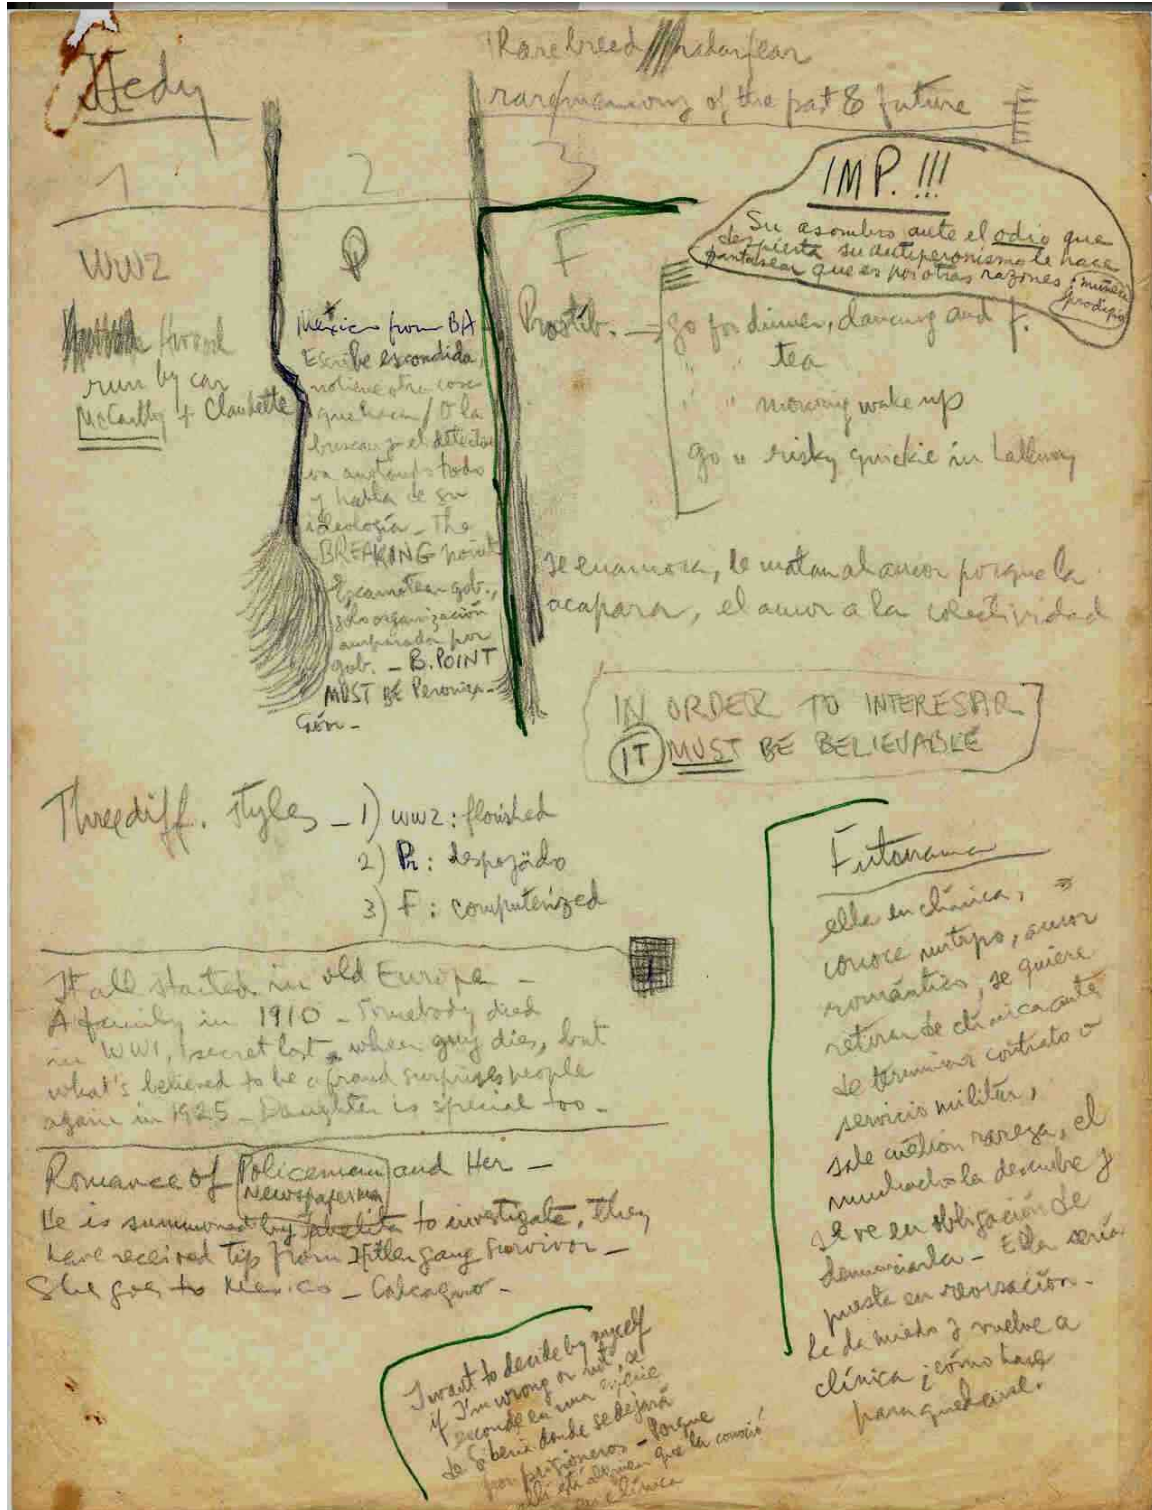 Hedy
Rare breed
of the past & future
1 2 3
WW2
P
F
IMP. !!!
Su asombro ante el odio que
despierta su antiperonismo le hace
fantasear que es por otras razones:
run by car
+ Claudette
Mexic from BA
Escribe escondida,
no tiene otra cosa
que hacer / O la
buscan y el detective
y habla de su
ideología – The
BREAKING point
gob.,
solo organización
amparada por
gob. – B. POINT
MUST BE Peroniza-
ción –
Prostib. → go for dinner, dancing and f.
" " tea
" " morning wake up
go " risky quickie in hallway
se enamora, le matan al amor porque la
acapara, el amor a la colectividad
IN ORDER TO INTERESAR
IT MUST BE BELIEVABLE
Three diff. styles – 1) WW2: florished
2) Pr: despojado
3) F: computerized
It all started in old Europa –
A family in 1910 – Somebody died
in WW1, secret lost when guy dies, but
what's believed to be a fraud surprises people
again in 1925 – Daughter is special too –
Romance of Policeman and Her –
Newspaperman
He is summoned by to investigate, they
have received tip from Hitler gang survivor –
She goes to Mexico – Calcagno –
Futorama
ella en clínica,
conoce un tipo, amor
romántico, se quiere
retirar de clínica antes
de terminar contrato o
servicio militar,
sale cuestión rareza, el
muchacho la descubre y
se ve en obligación de
denunciarla – Ella sería
puesta en
le da miedo y vuelve a
clínica ¿cómo hace
para quedarse.
I want to decide by myself
if I'm wrong or not, se
esconde en una especie
de Siberia donde se dejará
por prisioneros – Porque
allí está alguien que la conoció
en clínica